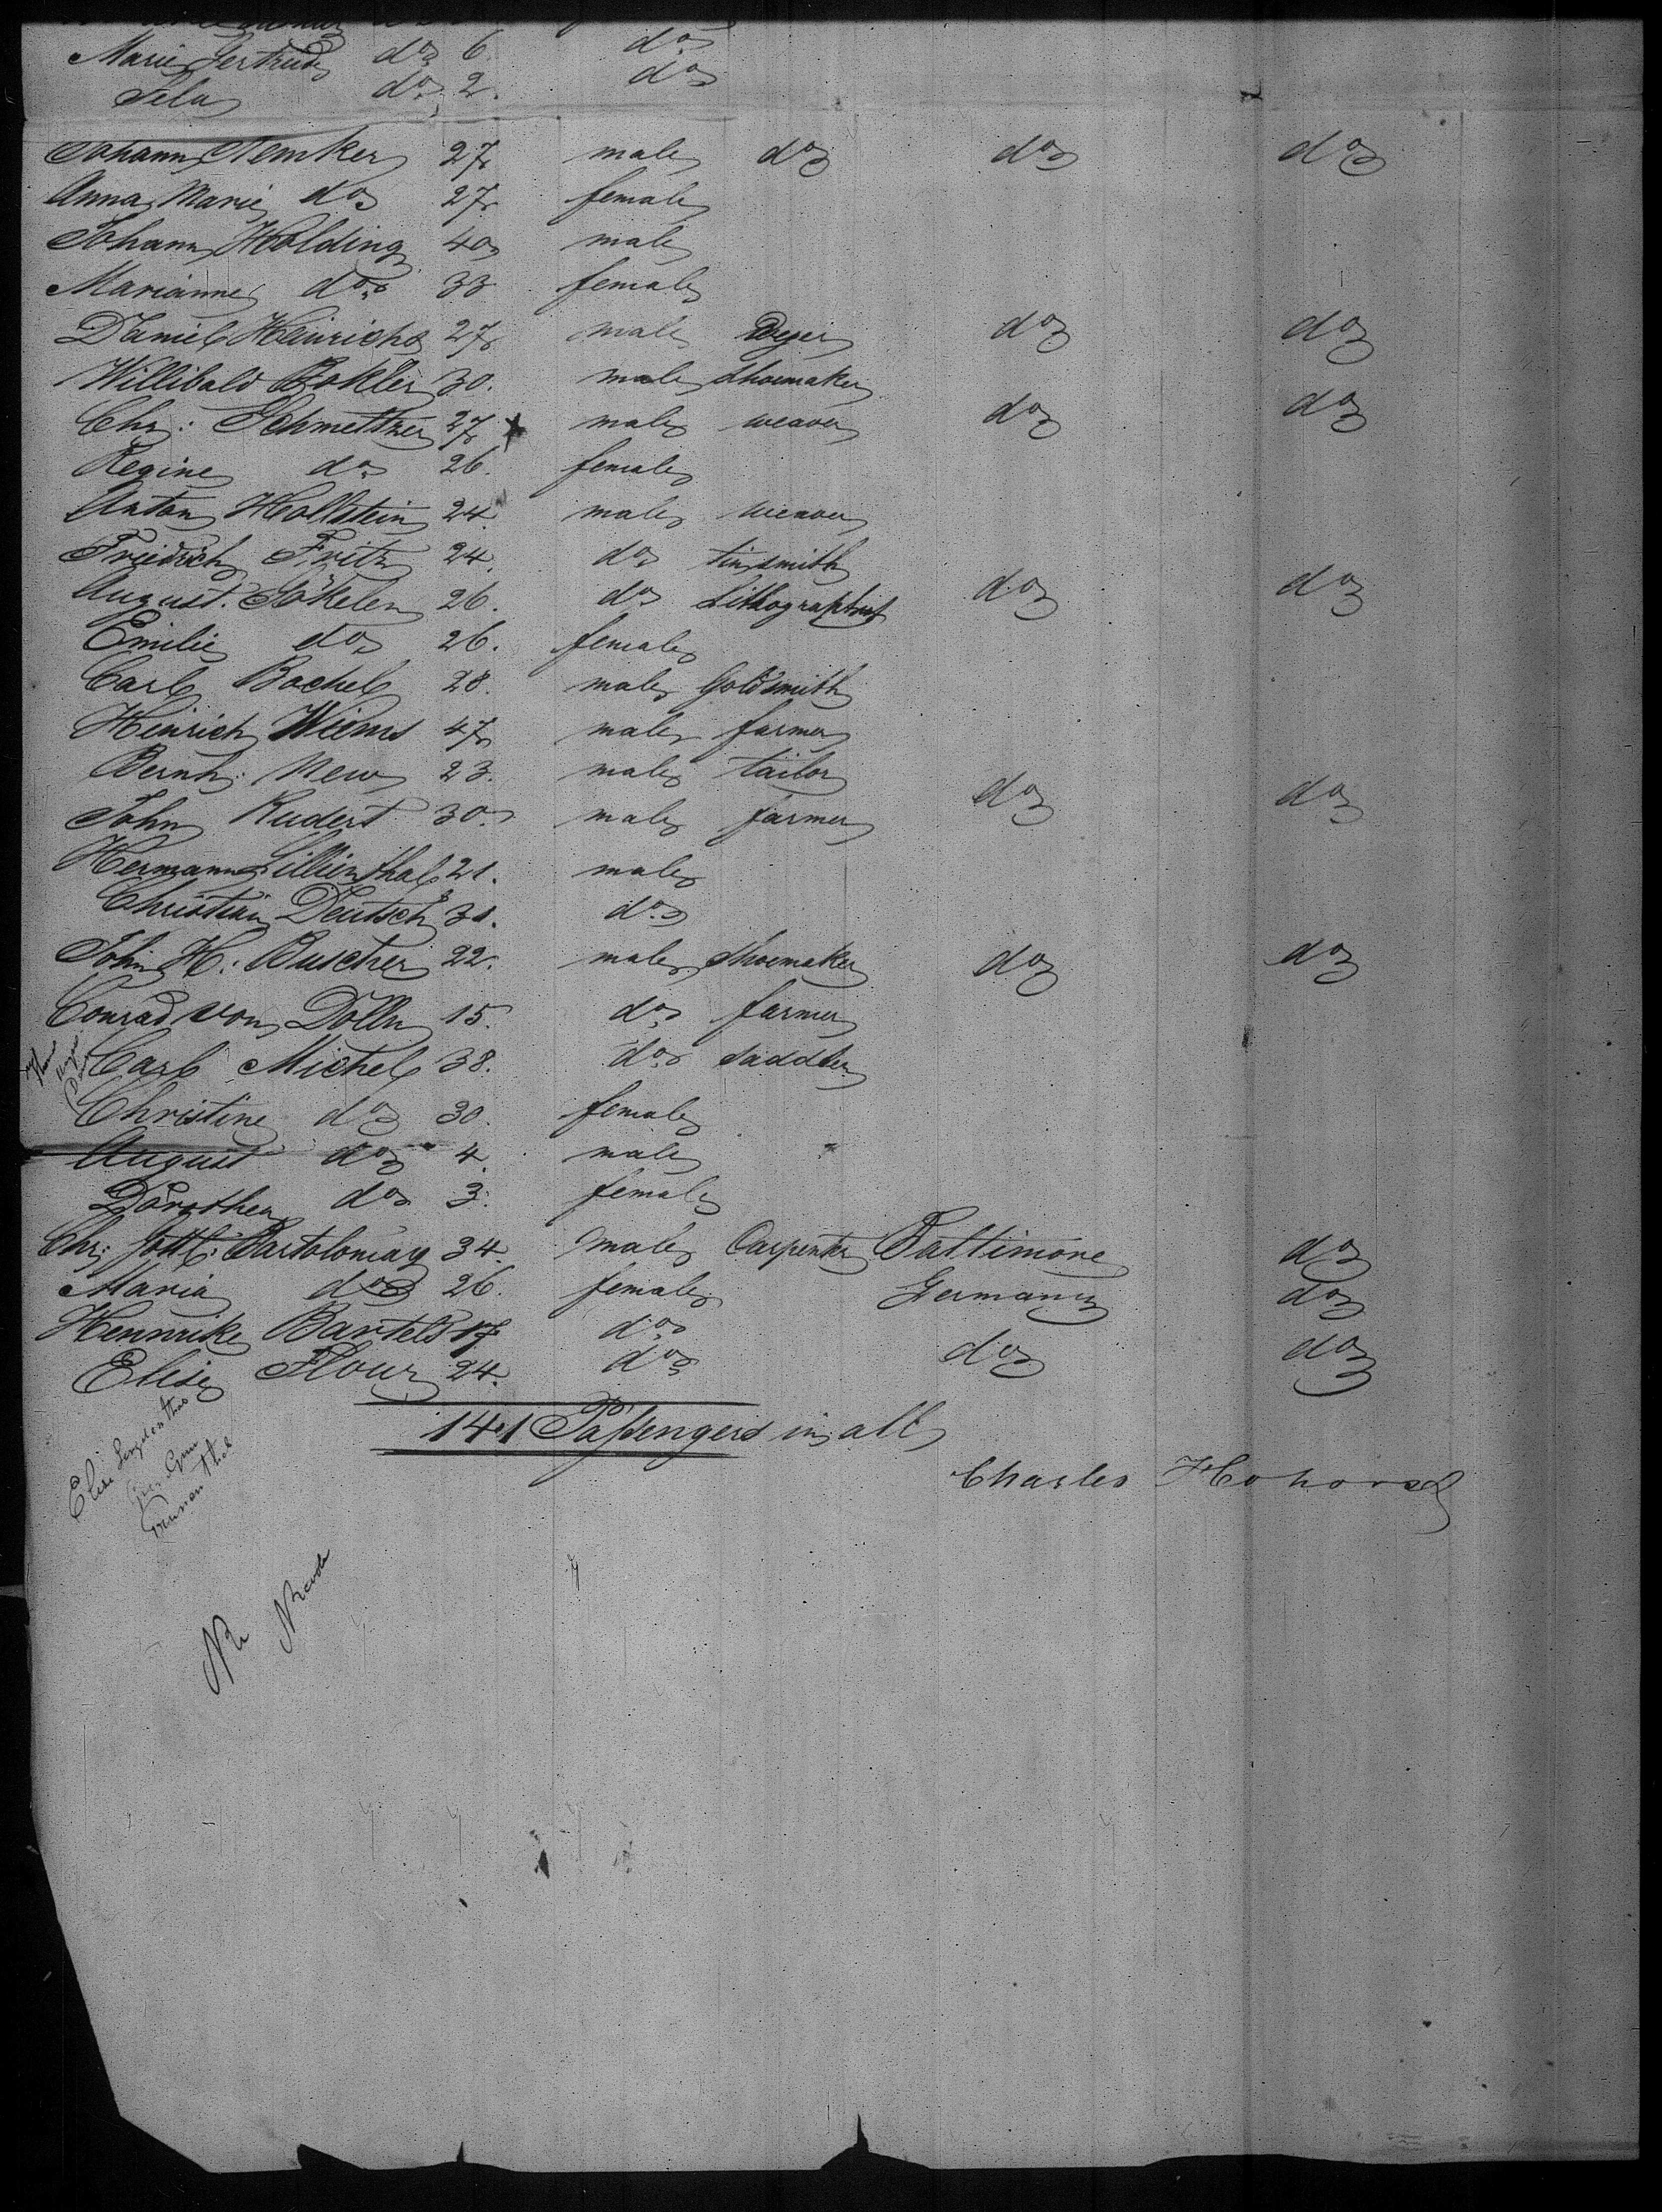 Marie Gertrude do 6. do
Lela do 2. do
Johann Remker 27 male do do do
Anna Marie do 27 female
Johann Holding 40 male
Marianne do 33 female
Daniel Heinrichs 27 male Dyer do do
Willibald Bokler 30. male Shoemaker
Chr: Schmettzer 27 male weaver do do
Regine do 26. female
Anton Hollstein 24. male weaver
Friedrich Fritz 24. do tinsmith
August. Sökelen 26. do Lithographist do do
Emilie do 26. female
Carl Bochel 28. male Goldsmith
Heinrich Wiems 47 male farmer
Bernh: New 23. male tailor
John Rudert 30. male farmer do do
Hermann Lillienthal 21. male
Christian Deutsch 31. do
John H. Buscher 22. male Shoemaker do do
Conrad von Dölln 15. do farmer
Carl Michel 38. do Saddler
Christine do 30. female
August do 4. male
Dorothea do 3. female
Chr: Gottl: Bartolomay 34. male Carpenter Baltimore do
Maria do 26. female Germany do
Hennrike Bartels 17 do
Elise Flour 24. do do do
141 Passengers in all
Charles Hohorst
Elise